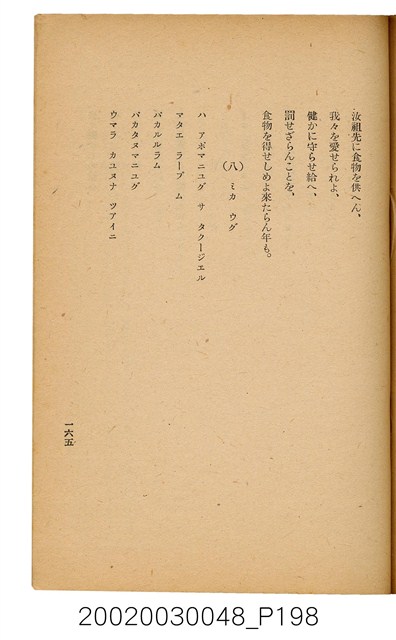 汝祖先に食物を供へん、
我々を愛せられよ、
健かに守らせ給へ、
罰せざらんことを、
食物を得せしめよ來たらん年も。
(八) ミカ ウグ
ハ アボマニユグ サ タクージエル
マタエ ラープ ム
パカルルラム
パカタヌマニユグ
ウマラ カユヌナ ツアイニ
一六五
20020030048_P198